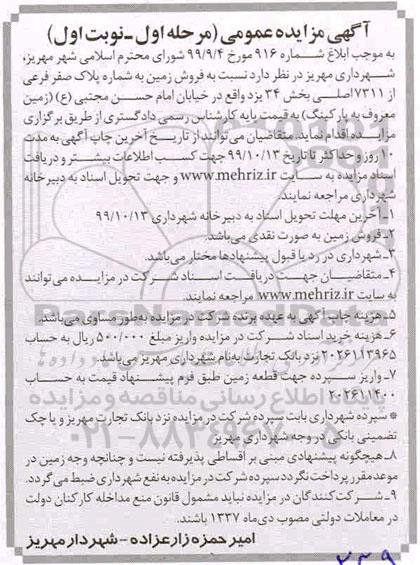 آگهی مزایده عمومی (مرحله اول - نوبت اول)
به موجب ابلاغ شماره ۹۱۶ مورخ ۹۹/۹/۴ شورای محترم اسلامی شهر مهریز،
شهرداری مهریز در نظر دارد نسبت به فروش زمین به شماره پلاک صفر فرعی
از ۷۳۱۱ اصلی بخش ۳۴ یزد واقع در خیابان امام حسن مجتبی (ع) (زمین
معروف به پارکینگ) به قیمت پایه کارشناس رسمی دادگستری از طریق برگزاری
مزایده اقدام نماید. متقاضیان می‌توانند از تاریخ آخرین چاپ آگهی به مدت
۱۰ روز و حداکثر تا تاریخ ۹۹/۱۰/۱۳ جهت کسب اطلاعات بیشتر و دریافت
اسناد مزایده به سایت www.mehriz.ir و جهت تحویل اسناد به دبیرخانه
شهرداری مراجعه نمایند.
۱ـ آخرین مهلت تحویل اسناد به دبیرخانه شهرداری ۹۹/۱۰/۱۳
۲ـ فروش زمین به صورت نقدی می‌باشد.
۳ـ شهرداری در رد یا قبول پیشنهادها مختار می‌باشد.
۴ـ متقاضیان جهت دریافت اسناد شرکت در مزایده می‌توانند
به سایت www.mehriz.ir مراجعه نمایند.
۵ـ هزینه چاپ آگهی به عهده برنده شرکت در مزایده به‌طور مساوی می‌باشد.
۶ـ هزینه خرید اسناد شرکت در مزایده واریز مبلغ ۵۰۰/۰۰۰ ریال به حساب
۲۰۲۶۱۱۳۹۶۵ نزد بانک تجارت به‌نام شهرداری مهریز می‌باشد.
۷ـ واریز سپرده جهت قطعه زمین طبق فرم پیشنهاد قیمت به حساب
۲۰۲۶۱۱۴۰۰
* سپرده شهرداری بابت سپرده شرکت در مزایده نزد بانک تجارت مهریز و یا چک
تضمینی بانکی در وجه شهرداری مهریز
۸ـ هیچگونه پیشنهادی مبنی بر اقساطی پذیرفته نیست و چنانچه وجه زمین در
موعد مقرر پرداخت نگردد سپرده شرکت در مزایده به نفع شهرداری ضبط می‌گردد.
۹ـ شرکت‌کنندگان در مزایده نباید مشمول قانون منع مداخله کارکنان دولت
در معاملات دولتی مصوب دی‌ماه ۱۳۳۷ باشند.
امیر حمزه زارعزاده - شهردار مهریز